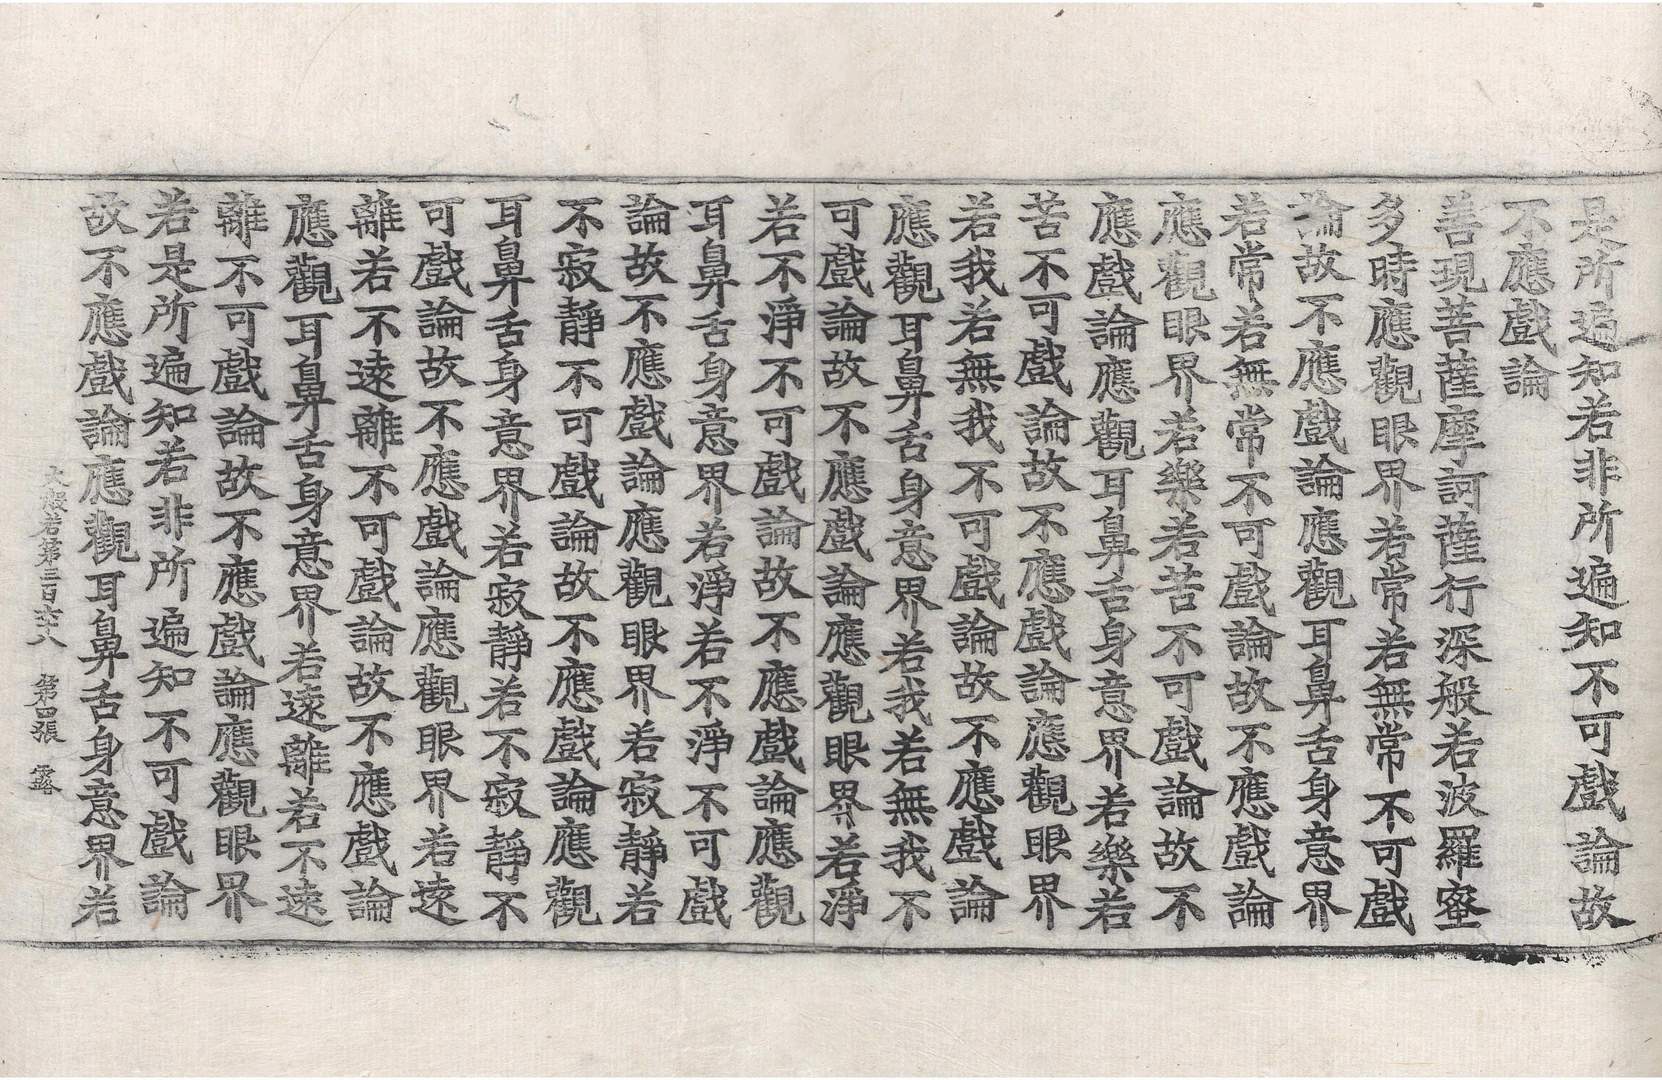 是所遍知若非所遍知不可戲論故
不應戲論
善現菩薩摩訶薩行深般若波羅蜜
多時應觀眼界若常若無常不可戲
論故不應戲論應觀耳鼻舌身意界
若常若無常不可戲論故不應戲論
應觀眼界若樂若苦不可戲論故不
應戲論應觀耳鼻舌身意界若樂若
苦不可戲論故不應戲論應觀眼界
若我若無我不可戲論故不應戲論
應觀耳鼻舌身意界若我若無我不
可戲論故不應戲論應觀眼界若淨
若不淨不可戲論故不應戲論應觀
耳鼻舌身意界若淨若不淨不可戲
論故不應戲論應觀眼界若寂靜若
不寂靜不可戲論故不應戲論應觀
耳鼻舌身意界若寂靜若不寂靜不
可戲論故不應戲論應觀眼界若遠
離若不遠離不可戲論故不應戲論
應觀耳鼻舌身意界若遠離若不遠
離不可戲論故不應戲論應觀眼界
若是所遍知若非所遍知不可戲論
故不應戲論應觀耳鼻舌身意界若
大般若第三百六八 第四張 露